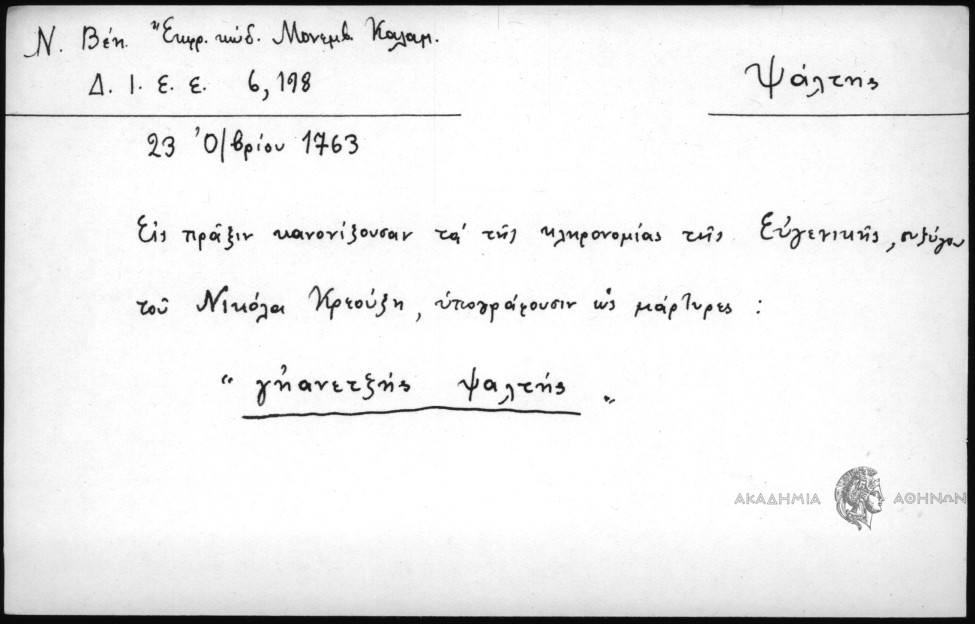 Ν. Βέη. "Εκφρ. κώδ. Μονεμβ. Καλαμ.
Δ. Ι. Ε. Ε. 6, 198
Ψάλτης
23 Ὀ/βρίου 1763
Εἰς πρᾶξιν κανονίζουσαν τά τῆς κληρονομίας τῆς Εὐγενικῆς, συζύγου
τοῦ Νικόλα Κρεούζη, ὑπογράφουσιν ὡς μάρτυρες :
“ γἠανετζής ψαλτής „
ΑΚΑΔΗΜΙΑ ΑΘΗΝΩΝ